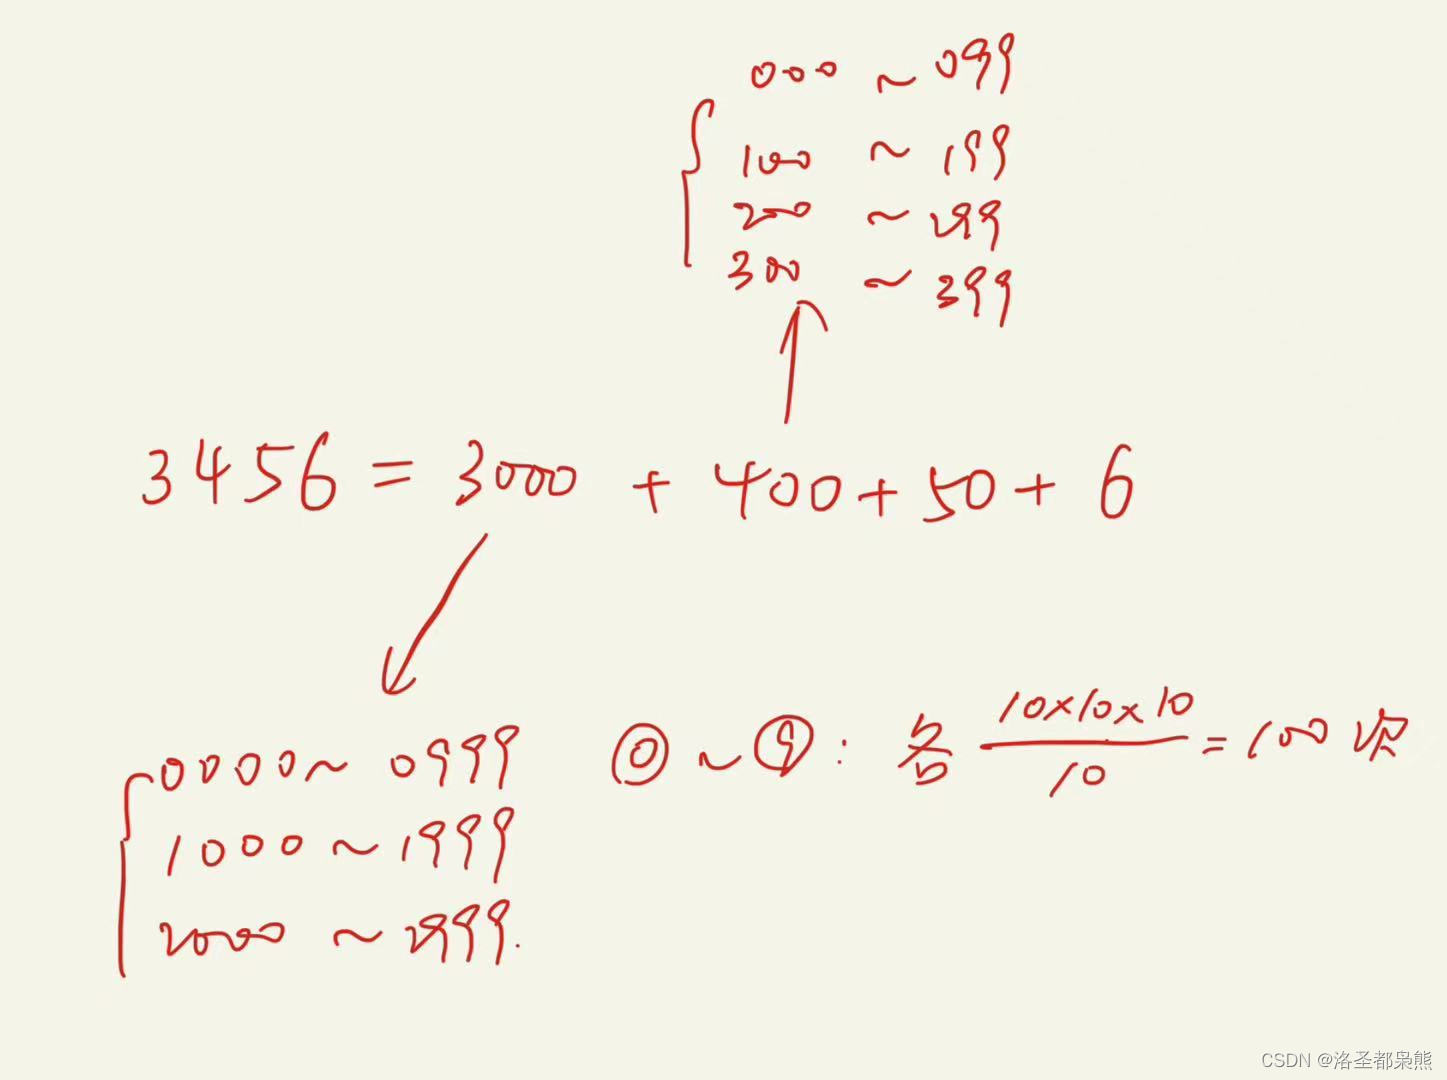 000 ~ 099
100 ~ 199
200 ~ 299
300 ~ 399
3456 = 3000 + 400 + 50 + 6
0000 ~ 0999
1000 ~ 1999
2000 ~ 2999.
⓪ ~ ⑨ : 各 10×10×10 / 10 = 100 次
CSDN @洛圣都枭熊